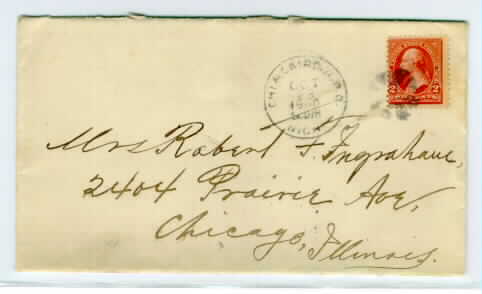 CHI. & GRAND R. P. O.
OCT
MICH
2 2
Mrs Robert F. Ingraham,
2404 Prairie Ave,
Chicago, Illinois.